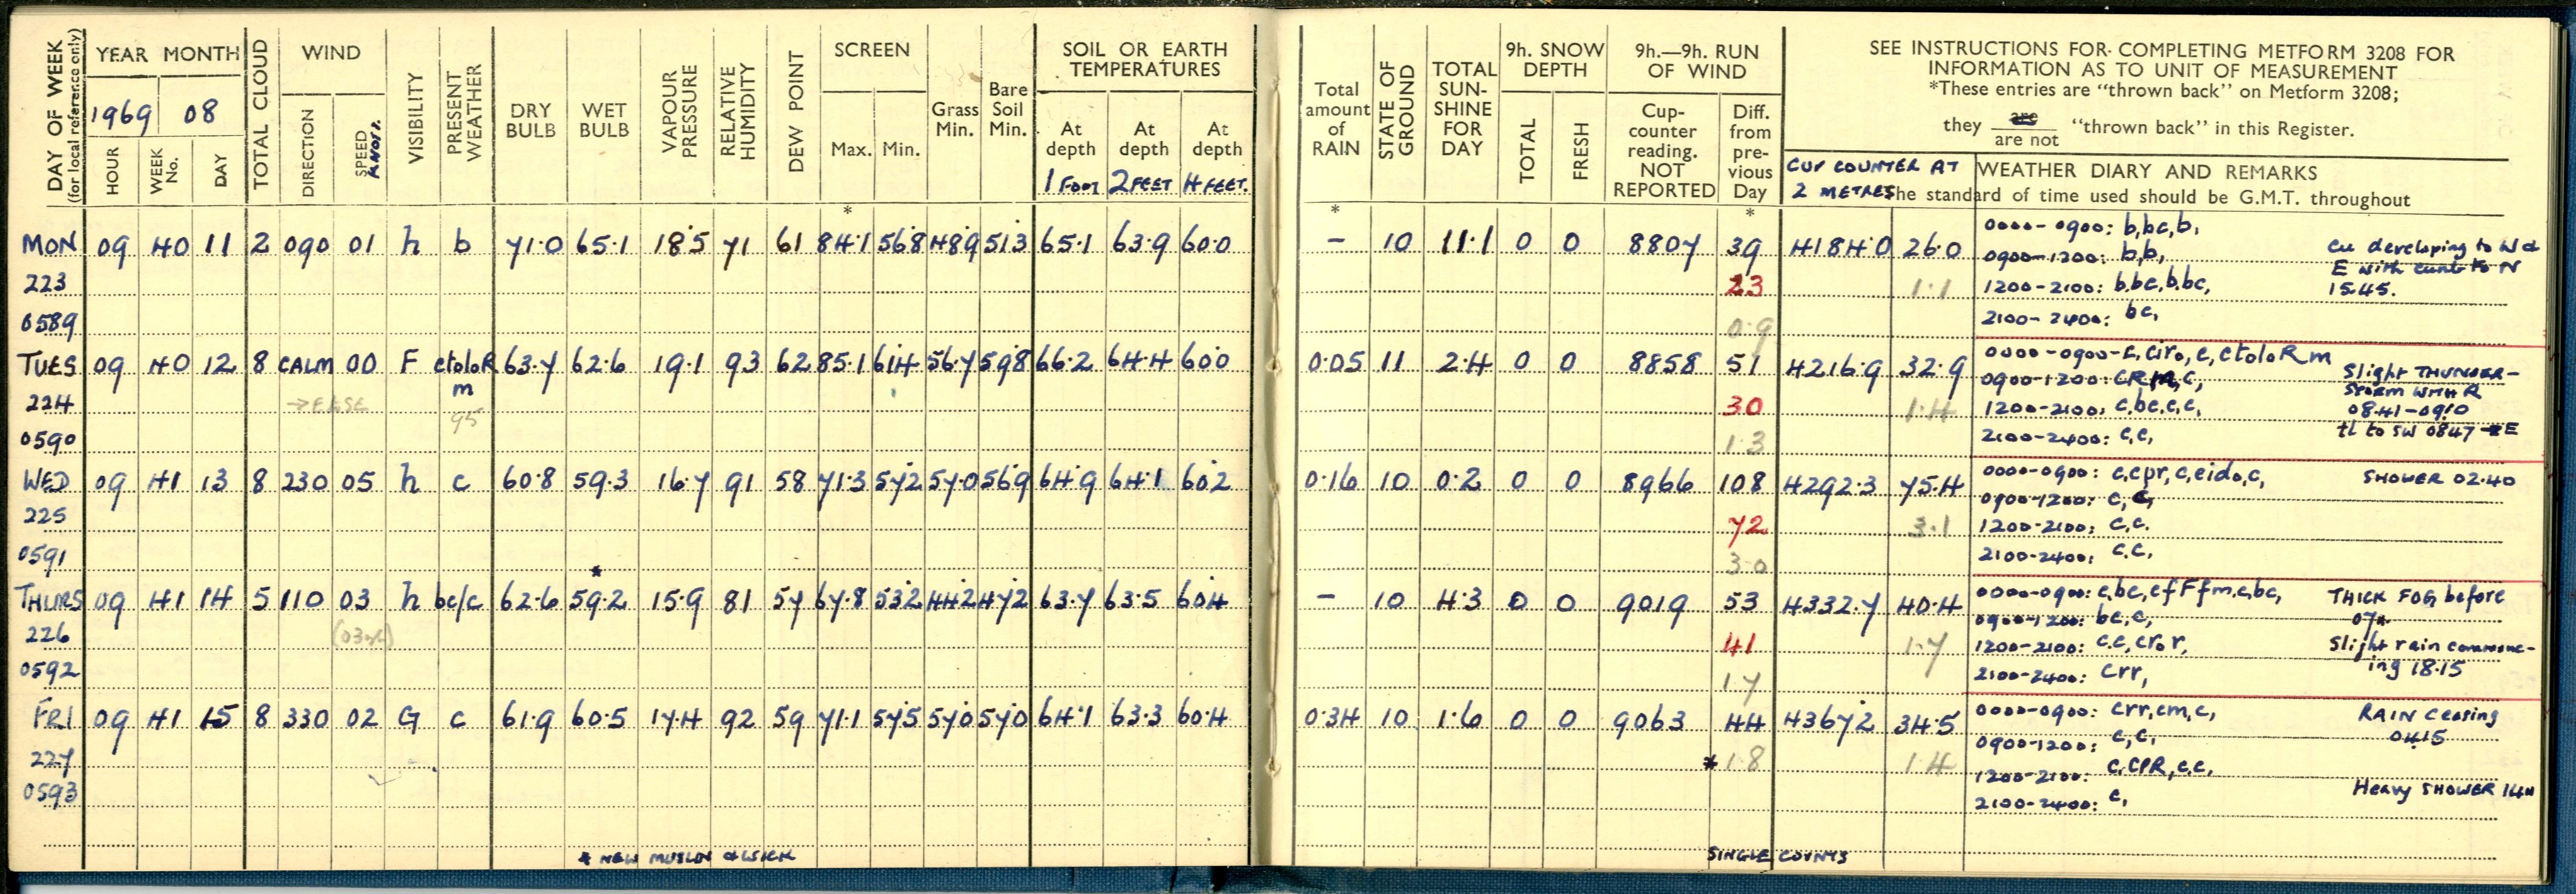 DAY OF WEEK
(for local reference only)
YEAR MONTH
1969 08
HOUR WEEK No. DAY
TOTAL CLOUD
WIND
DIRECTION SPEED KNOTS.
VISIBILITY
PRESENT WEATHER
DRY BULB
WET BULB
VAPOUR PRESSURE
RELATIVE HUMIDITY
DEW POINT
SCREEN
Max. Min.
Grass Min.
Bare Soil Min.
SOIL OR EARTH TEMPERATURES
At depth 1 FOOT
At depth 2 FEET
At depth 4 FEET.
Total amount of RAIN
STATE OF GROUND
TOTAL SUN-SHINE FOR DAY
9h. SNOW DEPTH
TOTAL FRESH
9h.—9h. RUN OF WIND
Cup-counter reading. NOT REPORTED
Diff. from pre-vious Day
SEE INSTRUCTIONS FOR COMPLETING METFORM 3208 FOR
INFORMATION AS TO UNIT OF MEASUREMENT
*These entries are "thrown back" on Metform 3208;
they are / are not "thrown back" in this Register.
CUP COUNTER AT
2 METRES
WEATHER DIARY AND REMARKS
The standard of time used should be G.M.T. throughout
* * *
MON 09 40 11 2 090 01 h b 71.0 65.1 18.5 71 61 84.1 56.8 48.9 51.3 65.1 63.9 60.0 – 10 11.1 0 0 8807 39 4184.0 26.0 0000-0900: b,bc,b,
0900-1200: b,b,
Cu developing to W &
E with cunb to N
223 23 1.1 1200-2100: b,bc,b,bc, 15.45.
0589 0.9 2100-2400: bc,
TUES 09 40 12 8 CALM 00 F ctloloR m 63.7 62.6 19.1 93 62 85.1 61.4 56.7 59.8 66.2 64.4 60.0 0.05 11 2.4 0 0 8858 51 4216.9 32.9 0000-0900-c,ciro,c,ctloloRm
0900-1200: c,
Slight THUNDER-
STORM WITH R
224 →ELSE 95 30 1.4 1200-2100: c,bc,c,c, 0841-0910
0590 1.3 2100-2400: c,c, tl to SW 0847 → E
WED 09 41 13 8 230 05 h c 60.8 59.3 16.7 91 58 71.3 57.2 57.0 56.9 64.9 64.1 60.2 0.16 10 0.2 0 0 8966 108 4292.3 75.4 0000-0900: c,cpr,c,cido,c, SHOWER 02.40
0900-1200: c,c,
225 72 3.1 1200-2100: c,c.
0591 3.0 2100-2400: c.c,
*
THURS 09 41 14 5 110 03 h bc/c 62.6 59.2 15.9 81 57 67.8 53.2 44.2 47.2 63.7 63.5 60.4 – 10 4.3 0 0 9019 53 4332.7 40.4 0000-0900: c,bc,cfFfm,c,bc, THICK FOG before
0900-1200: bc,c, 07
226 41 1.7 1200-2100: c.c,cro r, Slight rain commenc-
ing 18.15
0592 1.7 2100-2400: crr,
FRI 09 41 15 8 330 02 G c 61.9 60.5 17.4 92 59 71.1 57.5 57.0 57.0 64.1 63.3 60.4 0.34 10 1.6 0 0 9063 44 4367.2 34.5 0000-0900: crr,cm,c, RAIN ceasing
0900-1200: c,c, 0415
227 * 1.8 1.4 1200-2100: c,cPR,c,c,
0593 2100-2400: c, Heavy SHOWER 14H
* NEW MUSLIN & WICK SINGLE COUNTS